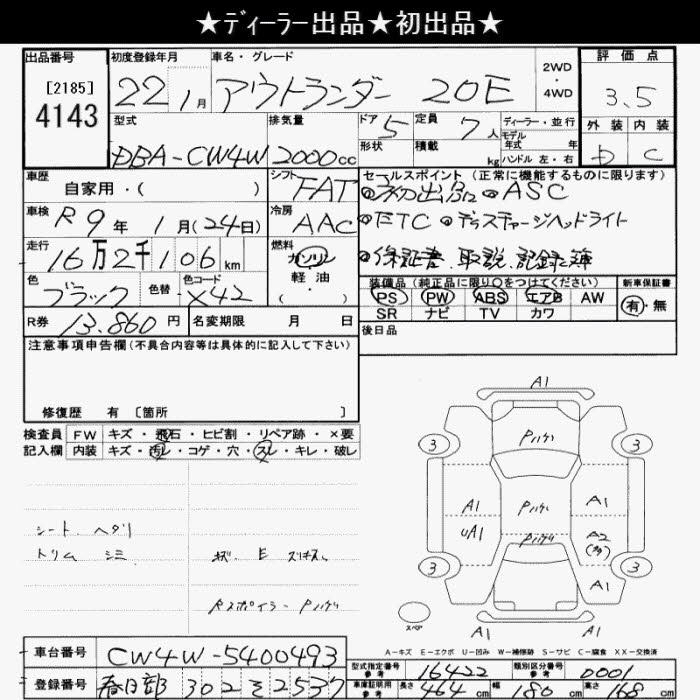 ★ディーラー出品★初出品★
出品番号 初度登録年月 車名・グレード 評価点
[2185] 4143 22 1月 アウトランダー 20E 2WD・4WD 3.5
型式 排気量 ドア 5 定員 7人 ディーラー・並行 外装 内装
モデル年式 年
DBA-CW4W 2000cc 形状 積載 kg ハンドル 左・右 D C
車歴 シフト セールスポイント(正常に機能するものに限ります)
自家用・( ) FAT ◎初出品 ◎ASC
車検 R9年1月(24日) 冷房 AAC ◎ETC ◎ディスチャージヘッドライト
走行 16万2千106km 燃料 ガソリン・軽油・( ) ◎保証書、取説、記録簿
色 ブラック 色替 色コード X42
装備品(純正品に限り○をつけてください) 新車保証書
PS PW ABS エアB AW 有・無
SR ナビ TV カワ
R券 13,860円 名変期限 月 日 後日品
注意事項申告欄(不具合内容等は具体的に記入して下さい)
修復歴 有 [箇所 ]
検査員 FW キズ・飛石・ヒビ割・リペア跡・×要
記入欄 内装 キズ・汚レ・コゲ・穴・スレ・キレ・破レ
A1
3 Pハゲ 3
A1 Pハゲ A1
UA1 Pハゲ A2
(多)
3 A1 3
スペア A1
シート ヘタリ
トリム シミ
Rスポイラー Pハゲ
A-キズ E-エクボ U-凹み W-補修跡 S-サビ C-腐食 XX-交換済
車台番号 CW4W-5400493 型式指定番号 参考 16422 類別区分番号 参考 0001
登録番号 春日部 302 そ 2537 車庫証明用 参考 長さ 464cm 幅 180cm 高さ 168cm